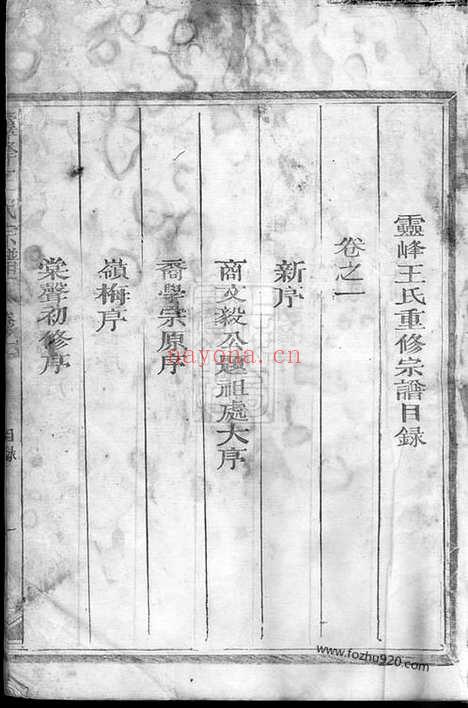 靈峰王氏重修宗譜目録
卷之一
新序
商文毅公遷祖處大序
喬學宗原序
嶺梅序
棠聲初修序
目録
nayona.cn
www.fozhu920.com